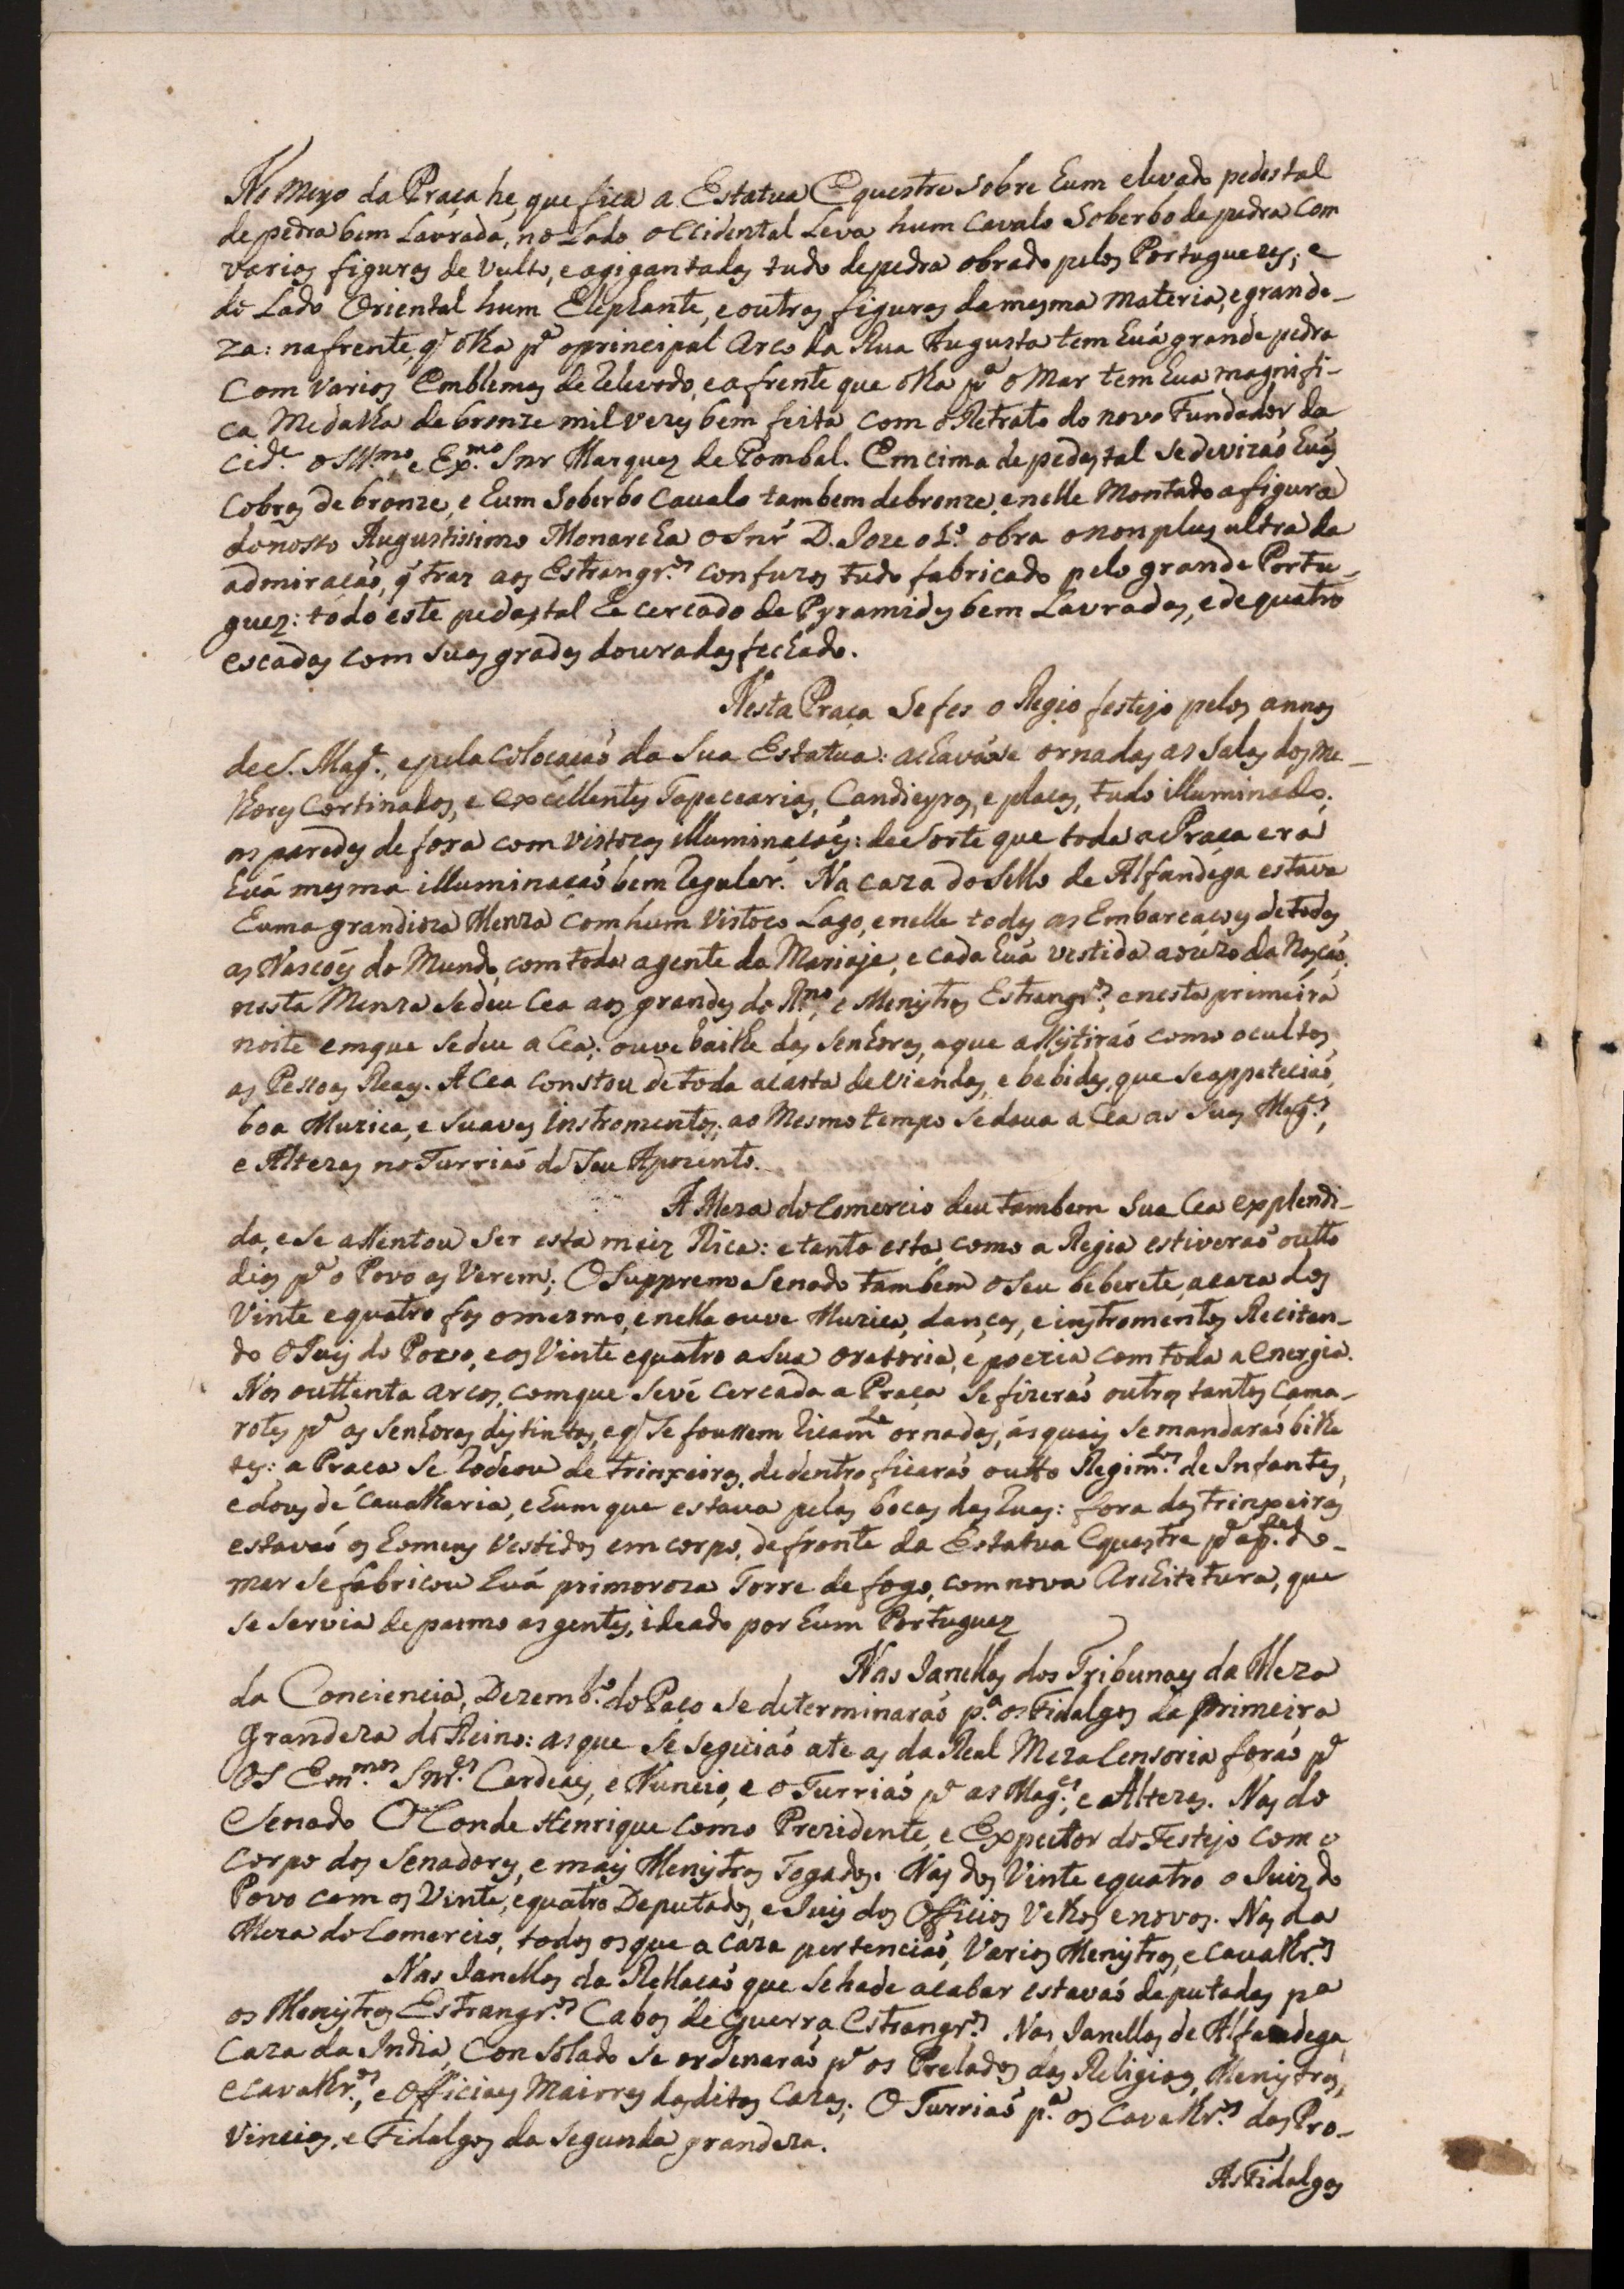 No meyo da Praça he, que fica a Estatua Equestre sobre hum elevado pedestal
de pedra bem Lavrada, no Lado occidental Leva hum Cavalo Soberbo de pedra com
varias figuras de vulto, e agigantadas tudo de pedra obrado pelos Portuguezes; e
do Lado Oriental hum Elephante, e outras figuras da mesma materia, e grande-
za: na frente, q̃ olha pª o principal Arco da Rua Augusta tem huá grande pedra
com varios Emblemas de relevado, e a frente que olha pª o Mar tem hua magnifi-
ca Medalha de bronze mil vezes bem feita com o Retrato do novo Fundador da
Cidᵉ. o Illᵐᵒ, e Exᵐᵒ. Snr Marquez de Pombal. Em cima de pedestal se devizaõ huás
Cobras de bronze, e hum Soberbo Cavalo tambem de bronze, e nelle Montado a figura
do nosso Augustissimo Monarcha o Snr̃ D. Joze o 1º. obra o non plus ultra da
admiraçaõ, q̃ traz aos Estrangrᵒˢ confuzos tudo fabricado pelo grande Portu-
guez: todo este pedestal he cercado de Pyramides bem Lavradas, e de quatro
escadas com suas grades douradas fechado.
Nesta Praça Se fes o Regio festejo pelos annos
de S. Magᵉ., e pela colocaçaõ da Sua Estatua: achavaõse ornadas as Salas dos me-
lhores Cortinados, e excellentes Tapecearias, Candieyros, e placas, tudo illuminado;
as paredes de fora com vistozas illuminaçoẽs: de Sorte que toda a Praça era
huá mesma illuminaçaõ bem regular. Na caza do Sello de Alfandega estava
huma grandioza Menza com hum Vistozo Lago, e nelle todas as Embarcaçoẽs de todas
as Nascoẽs do Mundo, com toda a gente da Mariaje, e cada huá vestida ao uzo da Nasçaõ;
nesta Menza se deu Cea aos grandes do Rⁿᵒ, e Menistros Estrangrᵒˢ, e nesta primeira
noite em que se deu a Cea; ouve bailhe das Senhoras, a que assistiraõ como ocultos
as Pessoas Reaes. A Cea constou de toda a casta de viandas, e bebidas, que se appeteciaõ,
boa Muzica, e suaves instromentos; ao Mesmo tempo se dava a Cea as Suas Magᵉˢ,
e Altezas no Turriaõ do Seu Apozento.
A Meza do Comercio deu tambem Sua Cea explendi-
da, e Se assentou Ser esta maiz Rica: e tanto esta, como a Regia estiveraõ outto
dias pª o Povo as Verem; O Suppremo Senado tambem o Seu beberete, a caza dos
Vinte e quatro fes o mesmo, e nella ouve Muzica, danças, e instromentos Recitan-
do O Juiz do Povo, e os Vinte e quatro a Sua oratoria, e poezia com toda a energia.
Nos outtenta arcos, com que se vé cercada a Praça Se fizeraõ outros tantos Cama-
rotes pª as Senhoras distintas, e q̃ Se fossem ricamᵗᵉ ornadas, ás quaes Se mandaraõ bilhe
tes: a Praça Se rodeou de trinxeiras, de dentro ficaraõ outto Regimᵗᵒˢ de Infantes,
e dous de Cavalharia, e hum que estava pelas bocas das ruas: fora das trinxeiras
estavaõ os homens Vestidos em corpo, de fronte da Estatua Equestre pª a pᵗᵉ do-
mar se fabricou huá primoroza Torre de fogo, com nova Architetura, que
se servia de pasmo as gentes, ideado por hum Portuguez
Nas Janellas dos Tribunaes da Meza
da Conciencia, Dezembº. do Paço se determinaraõ pª. os Fidalgos da Primeira
Grandeza do Reino: as que Se Seguiaõ ate as da Real Meza Censoria foraõ pª
os Emᵐᵒˢ Snrᵉˢ. Cardeaes, e Nuncio, e o Turriaõ pª as Magᵉˢ, e Altezas. Nas do
Senado O Conde Henrique como Prezidente, e Expector do Festejo com o
Corpo dos Senadores, e mais Menistros Togados. Nas dos Vinte e quatro o Juiz do
Povo com os Vinte, e quatro Deputados, e Juiz dos Officios Velhos e novos. Nas da
Meza do Comercio, todos os que a caza pertenciaõ, Varios Menistros, e Cavalhrᵒˢ
Nas Janellas da Rellaçaõ que se hade acabar estavaõ deputadas pª
os Menistros Estrangrᵒˢ Cabos de Guerra Estrangrᵒˢ. Nas Janellas de Alfandega,
Caza da India, Consolado se ordenaraõ pª os Prelados das Religioẽs, Menistros,
e Cavalhrᵒˢ, e Officiaes Maiores das ditas Cazas; O Turriaõ pª. os Cavalhrᵒˢ das Pro-
vincias, e Fidalgos da Segunda grandeza.
As Fidalgas